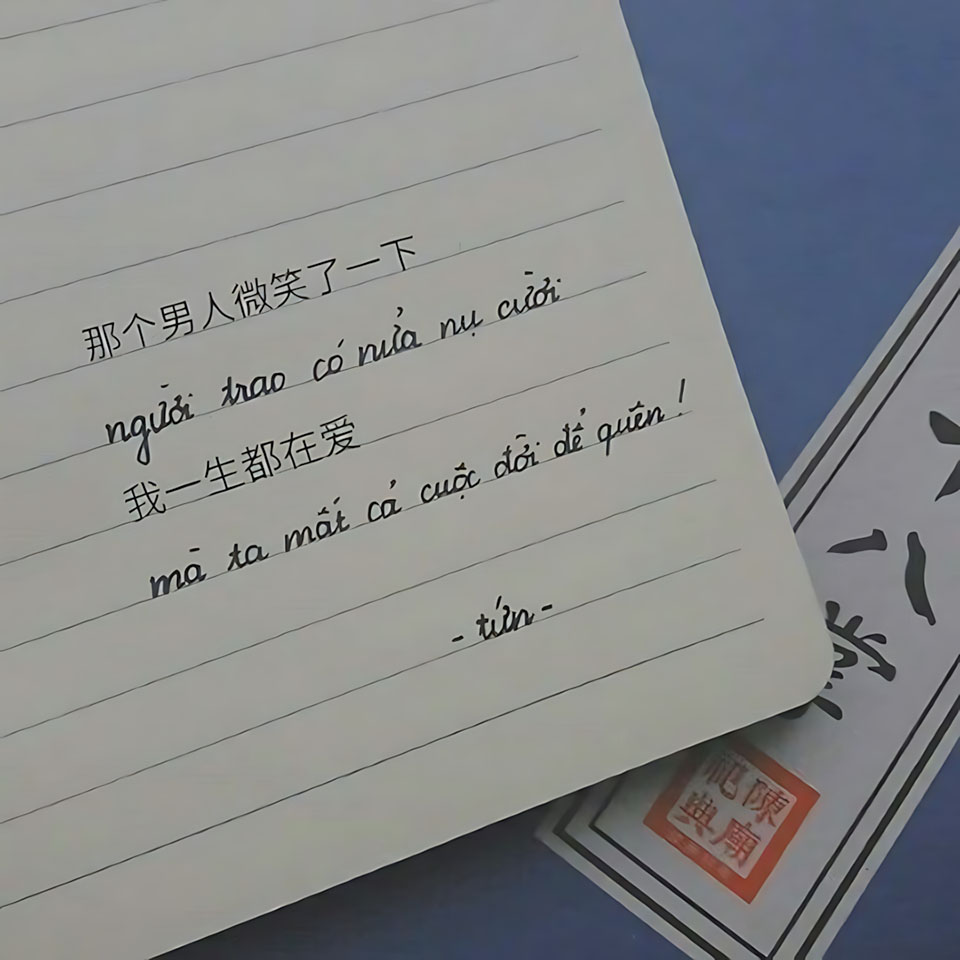 那个男人微笑了一下
người trao có nửa nụ cười
我一生都在爱
mà ta mất cả cuộc đời để quên!
- tứn -
陳廟
祀典